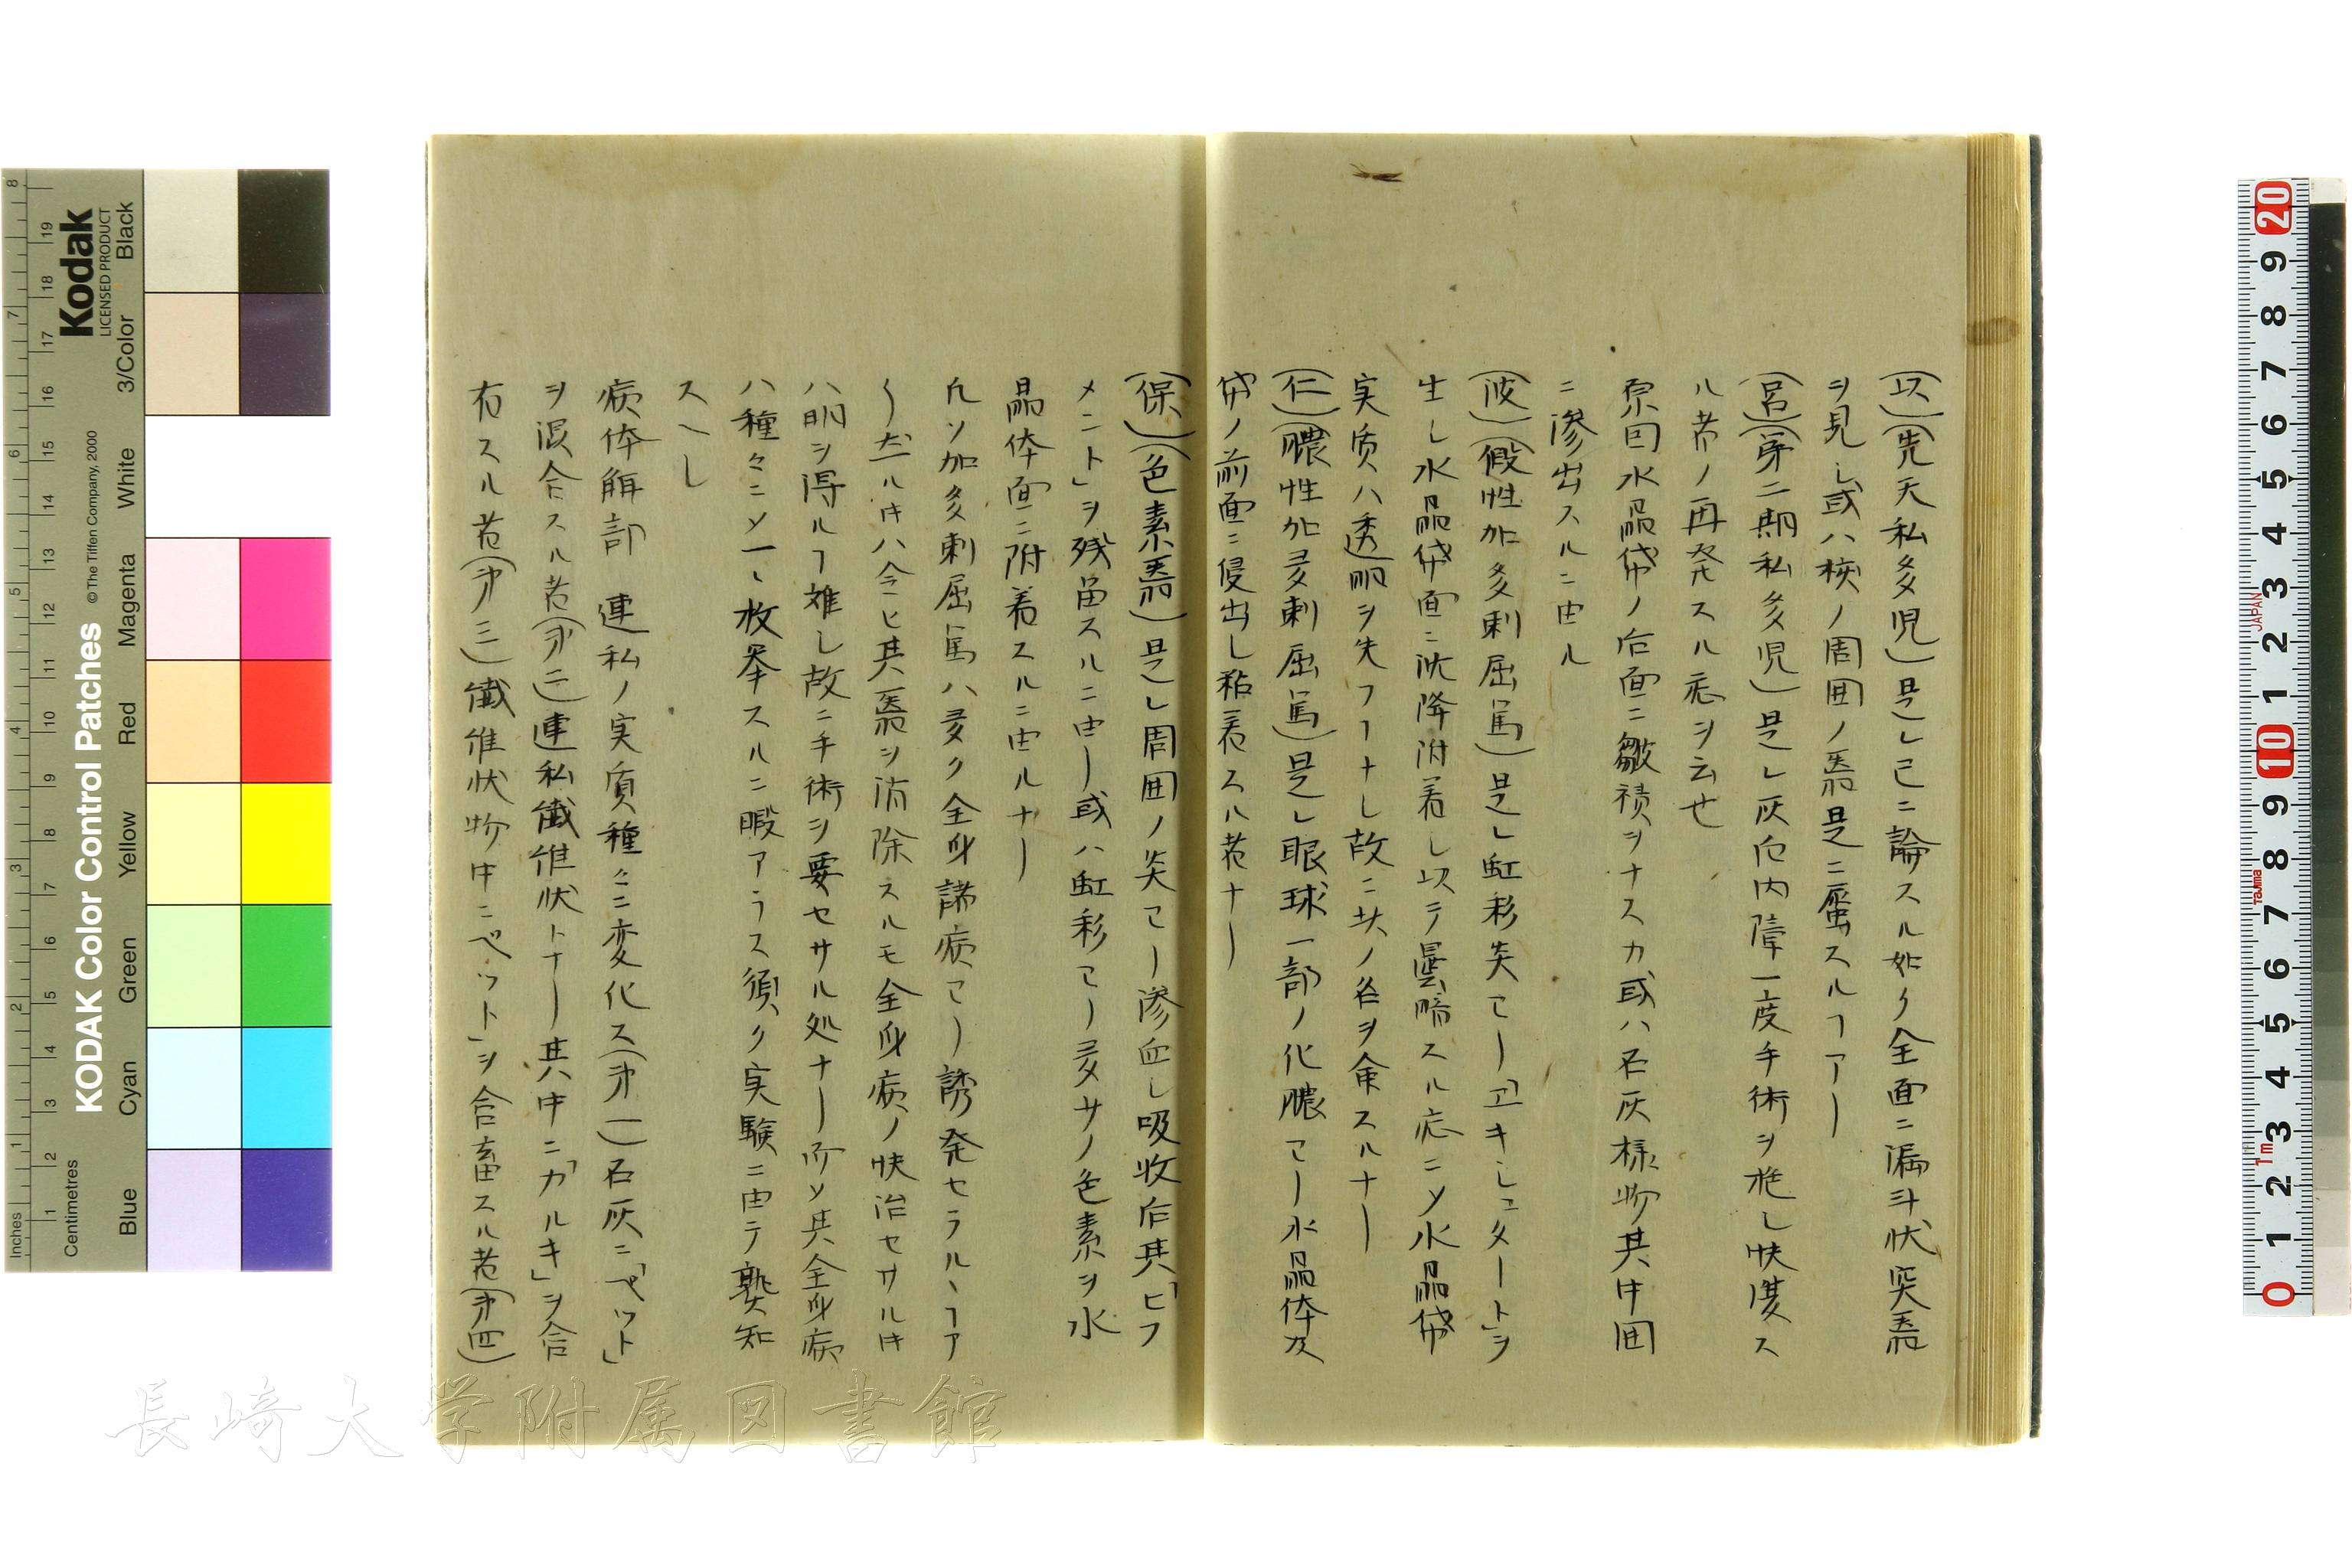 (以)(先天私多児)是レ已ニ論スル如ク全面ニ漏斗状突翳
ヲ見レ或ハ核ノ周囲ノ翳是ニ属スルヿアリ
(呂)(第二期私多児)是レ灰白内障一度手術ヲ施し快復ス
ル者ノ再発スル症ヲ云也
原因水晶帒ノ后面ニ皺襀ヲナスカ或ハ石灰様物其中間
ニ滲出スルニ由ル
(波)(假性加多剌屈馬)是レ虹彩炎ヨリ「エキシュタート」ヲ
生し水晶帒面ニ沈降附着し以テ曇暗スル症ニソ水晶帒
実质ハ透明ヲ失フヿナし故ニ其ノ名ヲ命スルナリ
(仁)(膿性加多剌屈馬)是レ眼球一部ノ化膿ヨリ水晶体及
帒ノ前面ニ侵出し粘着スル者ナリ
(保)(色素翳)是レ周囲ノ炎ヨリ滲血し吸收后其「ピフ
メニト」ヲ残畄スルニ由リ或ハ虹彩ヨリ多少ノ色素ヲ水
晶体面ニ附着スルニ由ルナリ
凡ソ加多剌屈馬ハ多ク全身諸病ヨリ誘発セラルヽヿア
リ
ハ令ヒ其翳ヲ消除スルモ全身病ノ快治セサル
ハ明ヲ得ルヿ難し故ニ手術ヲ要セサル処ナリ而ソ其全身病
ハ種々ニソ一々枚挙スルニ暇アラス須ク実験ニ由テ熟知
スヘし
病体解剖 連私ノ実質種々ニ変化ス(第一)石灰ニ「ペット」
ヲ混合スル者(第二)連私纎維状トナリ其中ニ「カルキ」ヲ含
有スル者(第三)纎維状物中ニ「ペット」ヲ含畜スル者(第四)
KODAK Color Control Patches
© The Tiffen Company, 2000
Kodak
LICENSED PRODUCT
Inches
Centimetres
Blue
Cyan
Green
Yellow
Red
Magenta
White
3/Color
Black
長崎大学附属図書館
JAPAN
Tajima
1m